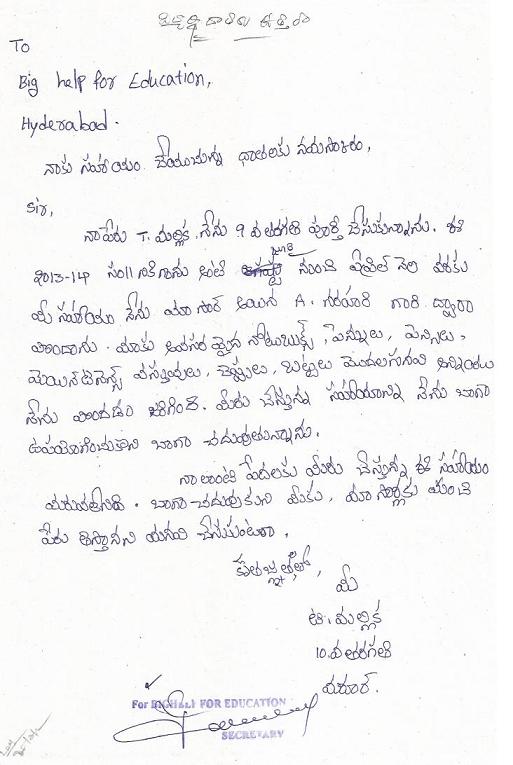 To
Big help for Education,
Hyderabad.
నాకు సహాయం చేయుచున్న దాతలకు నమస్కారం,
Sir,
నాపేరు T. మల్లిక, నేను 9 వ తరగతి పూర్తి చేసుకున్నాను. ఈ
2013-14 సం॥నికిగాను అంటే జూన్ నుంచి ఏప్రిల్ నెల వరకు
మీ సహాయం నేను మా సార్ అయిన A. నరహరి గారి ద్వారా
పొందాను. మాకు అవసరమైన నోటుబుక్స్, పెన్నులు, పెన్సిలు,
మెయింటినెన్స్ వస్తువులు, చెప్పులు, బట్టలు మొదలగునవి అన్నియు
నేను పొందడం జరిగింది. మీరు చేస్తున్న సహాయాన్ని నేను బాగా
ఉపయోగించుకుని బాగా చదువుతున్నాను.
నాలాంటి పేదలకు మీరు చేస్తున్న ఈ సహాయం
మరువలేనిది. బాగా చదువుకుని మీకు, మా సార్లకు మంచి
పేరు తెస్తానని మనవి చేసుకుంటూ,
కృతజ్ఞతలతో,
మీ
టి. మల్లిక
10. వ తరగతి
For BIGHELP FOR EDUCATION
SECRETARY